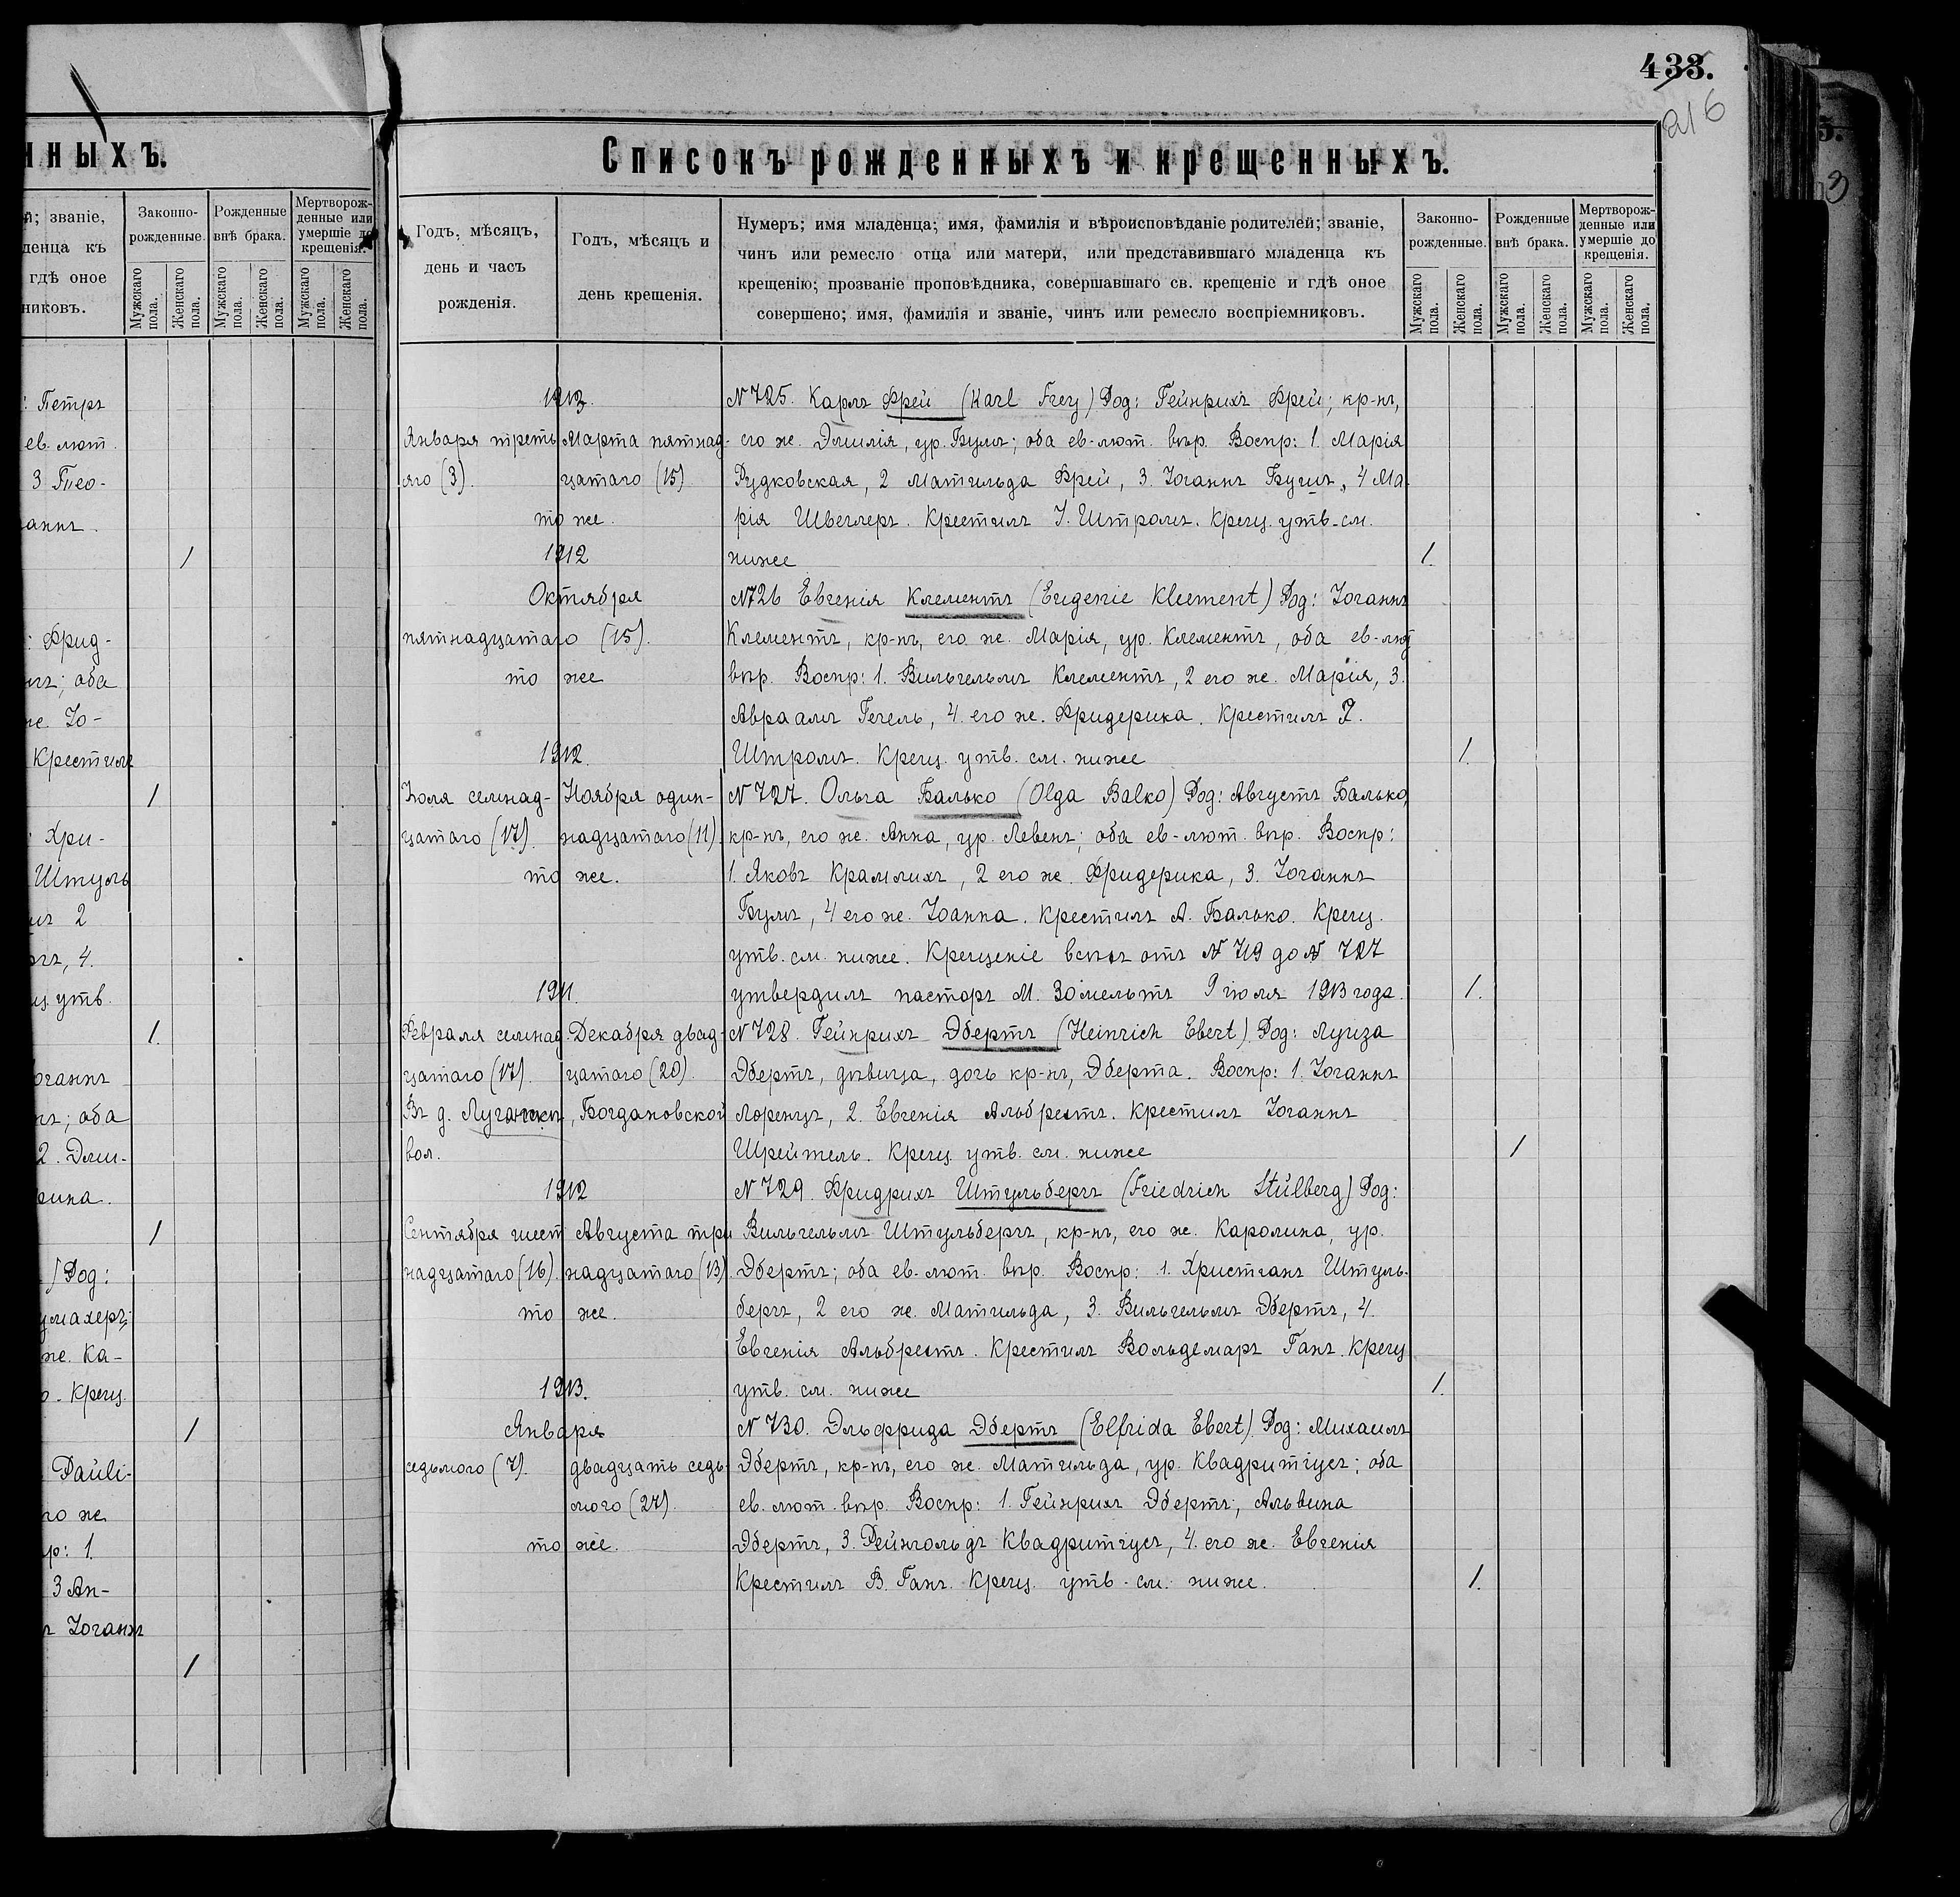 433.
216
нныхъ.
й; званіе,
денца къ
гдѣ оное
никовъ.
Законно-
рожденные.
Рожденные
внѣ брака.
Мертворож-
денные или
умершіе до
крещенія.
Мужскаго пола.
Женскаго пола.
Мужскаго пола.
Женскаго пола.
Мужскаго пола.
Женскаго пола.
: Петръ
ев. лют.
3 Тео-
аннъ.
1
: Фрид-
; оба
же. Іо-
Крестилъ
1
: Хри-
Штуль
2
, 4.
утв.
1.
оганнъ
; оба
2. Эми-
рина.
1
Род:
умахеръ;
же. Ка-
. Крещ.
1
Pauli-
го же
р: 1.
3 Ан-
Іоганнъ
1
Списокъ рожденныхъ и крещенныхъ.
Годъ, мѣсяцъ,
день и часъ
рожденія.
Годъ, мѣсяцъ и
день крещенія.
Нумеръ; имя младенца; имя, фамилія и вѣроисповѣданіе родителей; званіе,
чинъ или ремесло отца или матери, или представившаго младенца къ
крещенію; прозваніе проповѣдника, совершавшаго св. крещеніе и гдѣ оное
совершено; имя, фамилія и званіе, чинъ или ремесло воспріемниковъ.
Законно-
рожденные.
Рожденные
внѣ брака.
Мертворож-
денные или
умершіе до
крещенія.
Мужскаго пола.
Женскаго пола.
Мужскаго пола.
Женскаго пола.
Мужскаго пола.
Женскаго пола.
1913. № 725. Карлъ Фрей (Karl Frey) Род: Гейнрихъ Фрей; кр-нъ,
Января треть Марта пятнад- его ж. Эмилія, ур. Бумъ; оба ев-лют. вѣр. Воспр: 1. Марія
яго (3). цатаго (15) Рудковская, 2 Матильда Фрей, 3. Іоганнъ, 4 Ма-
то же. рія Швеглеръ. Крестилъ І. Штромъ. Крещ. утв. см.
1912 ниже 1.
Октября № 726 Евгенія Клементъ (Eugenie Klement) Род: Іоганнъ
пятнадцатаго (15). Клементъ, кр-нъ, его ж. Марія, ур. Клементъ, оба ев-лют
то же вѣр. Воспр: 1. Вильгельмъ Клементъ, 2 его ж. Марія, 3.
Авраамъ Гегель, 4. его ж. Фридерика. Крестилъ І.
1912. Штромъ. Крещ. утв. см. ниже 1.
Іюля семнад- Ноября один- № 727. Ольга Балько (Olga Balko) Род: Августъ Балько,
цатаго (17). надцатаго (11). кр-нъ, его ж. Анна, ур. Левенъ; оба ев-лют. вѣр. Воспр:
то же. 1. Яковъ Краммихъ, 2 его ж. Фридерика, 3. Іоганнъ
Бумъ, 4 его ж. Іоанна. Крестилъ А. Балько. Крещ.
утв. см. ниже. Крещеніе всѣхъ отъ № 719 до № 727
1911. утвердилъ пасторъ М. Зомельтъ 9 іюля 1913 года. 1.
Февраля семнад- Декабря двад- № 728. Гейнрихъ Эбертъ (Heinrich Ebert) Род: Луиза
цатаго (17). цатаго (20). Эбертъ, дѣвица, дочь кр-нъ, Эберта. Воспр: 1. Іоганнъ
Въ д., Богдановской Лоренцъ, 2. Евгенія Альбрехтъ. Крестилъ Іоганнъ
вол. Шрейтель. Крещ. утв. см. ниже 1
1912 № 729. Фридрихъ Штульбергъ (Friedrich Stülberg) Род:
Сентября шест Августа три Вильгельмъ Штульбергъ, кр-нъ, его ж. Каролина, ур.
надцатаго (16). надцатаго (13) Эбертъ; оба ев. лют. вѣр. Воспр: 1. Христіанъ Штуль-
то же. бергъ, 2 его ж. Матильда, 3. Вильгельмъ Эбертъ, 4.
Евгенія Альбрехтъ. Крестилъ Вольдемаръ Ганъ. Крещ
1913. утв. см. ниже 1.
Января № 730. Эльфрида Эбертъ (Elfrida Ebert) Род: Михаилъ
седьмого (7). двадцать седь- Эбертъ, кр-нъ, его ж. Матильда, ур. Квадритіусъ; оба
мого (27). ев. лют. вѣр. Воспр: 1. Гейнрихъ Эбертъ, Альвина
то же. Эбертъ, 3. Рейнгольдъ Квадритіусъ, 4. его ж. Евгенія
Крестилъ В. Ганъ. Крещ. утв. см. ниже. 1.